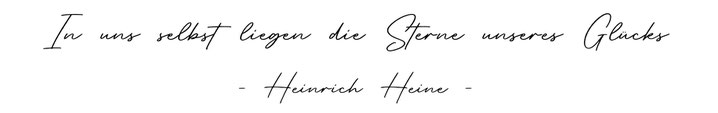 In uns selbst liegen die Sterne unseres Glücks
- Heinrich Heine -